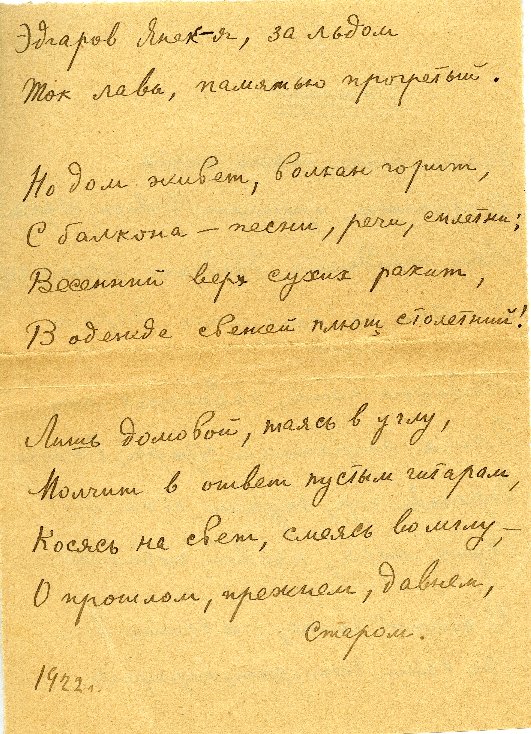 Эдгаров Янек-я, за льдом
Ток лавы, памятью прогретый.
Но дом живет, волкан горит,
С балкона – песни, речи, сплетни;
Весенний верх сухих ракит,
В одежде свежей плющ столетний!
Лишь домовой, таясь в углу,
Молчит в ответ пустым гитарам,
Косясь на свет, смеясь во мглу, –
О прошлом, прежнем, давнем,
старом.
1922 г.